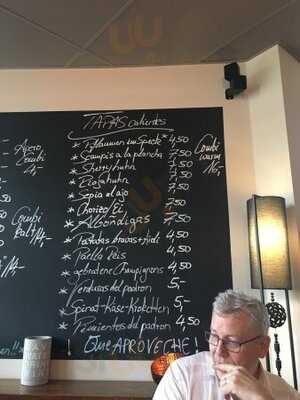 TAPAS calientes
* Pflaumen im Speck * 4,50
* Scampis a la plancha 7,50
* Sherryhuhn 7,50
* Riojahuhn 7,50
* Sepia al ajo 7,50
* Chorizo/Ei
* Albondigas 7,50
* Patatas bravas + Aioli 4,50
* Paella Reis 4,50
* gebratene Champignons 4,50
* Verduras del padron 5,-
* Spinat-Käse-Kroketten 5,-
* Pimientos del padron 4,50
Que APROVECHE!
Combi
warm
16,-
Apero
Combi
Combi
kalt
14,-